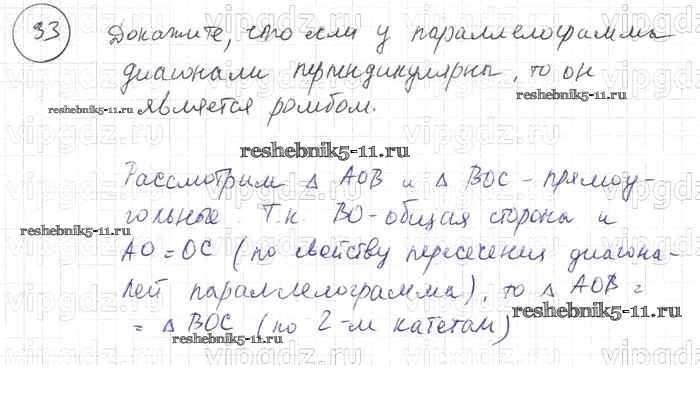 33
Докажите, что если у параллелограмма
диагонали перпендикулярны, то он
reshebnik5-11.ru
reshebnik5-11.ru
является ромбом.
reshebnik5-11.ru
Рассмотрим △ AOB и △ BOC - прямоу-
гольные. Т.к. BO - общая стороны и
reshebnik5-11.ru
AO = OC (по свойству пересечения диагона-
лей параллелограмма), то △ AOB =
= △ BOC (по 2-м катетам)
reshebnik5-11.ru
reshebnik5-11.ru
vipgdz.ru